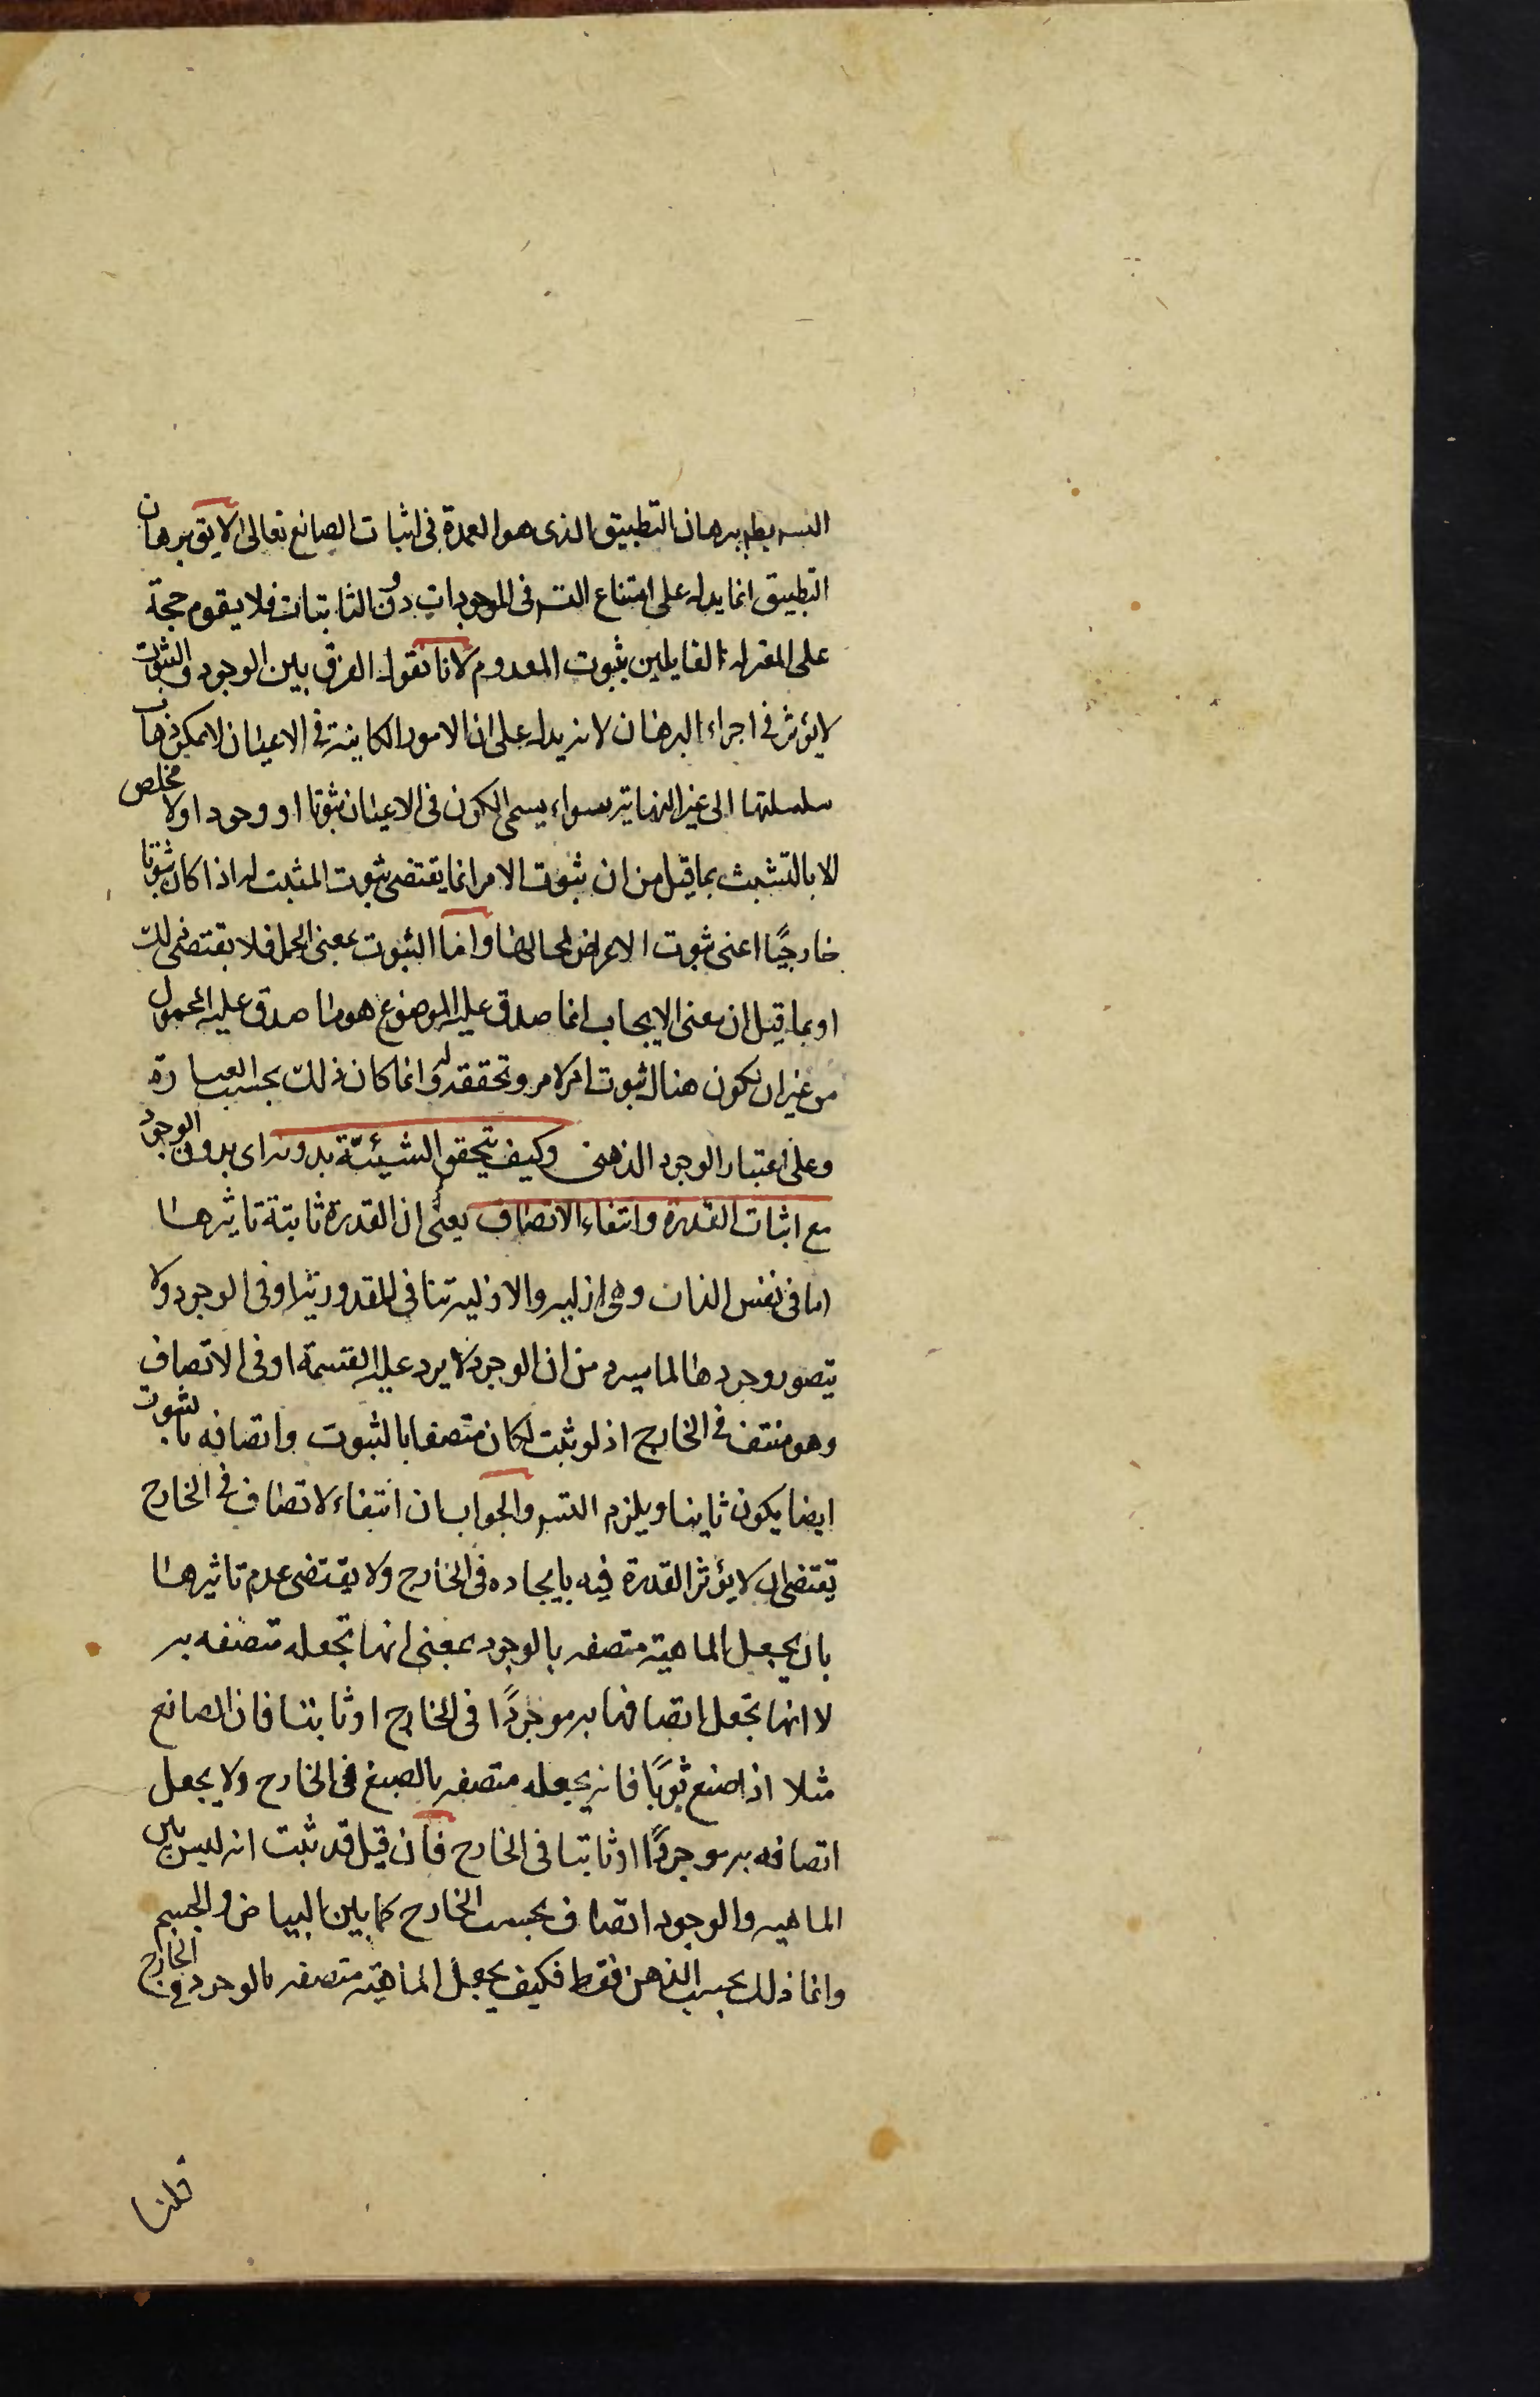 التسـ يطـ ببرهان التطبيق الذى هو العمدة فى اثبات الصانع تعالى لا يق برهان
التطبيق انما يدل على امتناع التسـ فى الموجودات دون الثابتات فلا يقوم حجة
على المعتزلة القايلين بثبوت المعدوم لانا نقول الفرق بين الوجود والثبوت
لا يؤثر فى اجراء البرهان لانه يدل على ان الامور الكاينة فى الاعيان لا يمكن ذهاب
سلسلتها الى غير النهاية سواء يسمى الكون فى الاعيان ثبوتا او وجودا ولا مخلص
الا بالتشبث بما قيل من ان ثبوت الامر انما يقتضى ثبوت المثبت له اذا كان ثبوتا
خارجيًا اعنى ثبوت الاعراض لمحالها واما الثبوت بمعنى الحمل فلا يقتضى ذلك
او بما قيل ان معنى الايجاب انما صدق عليه الموضوع هو ما صدق عليه المحمول
من غير ان يكون هناك ثبوت امر لامر وتحققه له وانما كان ذلك بحسب العبارة
وعلى اعتبار الوجود الذهنى وكيف يتحقق الشيئية بدونه اى بدون الوجود
مع اثبات القدرة وانتفاء الاتصاف يعنى ان القدرة ثابتة تاثيرها
اما فى نفس الذات وهى ازليه والازلية تنافى المقدورية او فى الوجود ولا
يتصور وجودها لما سيرد من ان الوجود لا يرد عليه القسمة او فى الاتصاف
وهو منتف فى الخارج اذ لو ثبت لكان متصفا بالثبوت واتصافه بالثبوت
ايضا يكون ثابتا ويلزم التسـ والجواب ان انتفاء الاتصاف فى الخارج
يقتضى ان لا يؤثر القدرة فيه بايجاده فى الخارج ولا يقتضى عدم تاثيرها
بان يجعل الماهية متصفه بالوجود بمعنى انها تجعله متصفه به
لا انها تجعل اتصافها به موجودًا فى الخارج او ثابتا فان الصانع
مثلا اذا صنع ثوبًا فانه يجعله متصفه بالصبغ فى الخارج ولا يجعل
اتصافه به موجودًا او ثابتا فى الخارج فان قيل قد ثبت انه ليس بين
الماهيه والوجود اتصاف بحسب الخارج كما بين البياض والجسم
وانما ذلك بحسب الذهن فقط فكيف يجعل الماهية متصفه بالوجود فى الخارج
قلنا